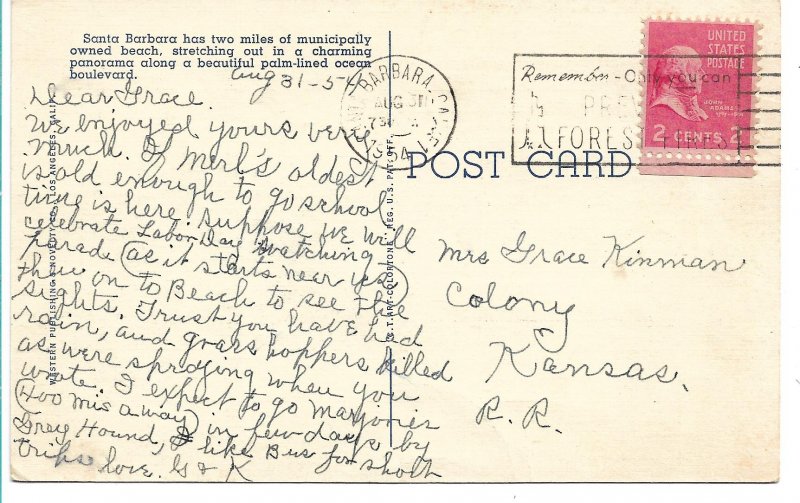 Santa Barbara has two miles of municipally
owned beach, stretching out in a charming
panorama along a beautiful palm-lined ocean
boulevard.
Aug 31-54
Dear Grace.
We enjoyed yours very
much. If Merl's oldest
is old enough to go school
time is here. suppose we will
celebrate Labor Day watching
parade (as it starts near us)
then on to Beach to see the
sights. Trust you have had
rain, and grass hoppers killed
as were spraying when you
wrote. I expect to go Marjories
(400 mis away) in few days by
Grey Hound, I like Bus for short
trips love. G & K
WESTERN PUBLISHING & NOVELTY CO., LOS ANGELES, CALIF.
C.T. ART-COLORTONE REG. U.S. PAT. OFF.
BARBARA, CALIF.
AUG 31
730
1954
Remember - Only you can
PRE
FOREST FIRES!
UNITED
STATES
POSTAGE
JOHN
ADAMS
2 CENTS 2
POST CARD
Mrs Grace Kinman
Colony
Kansas.
R.R.